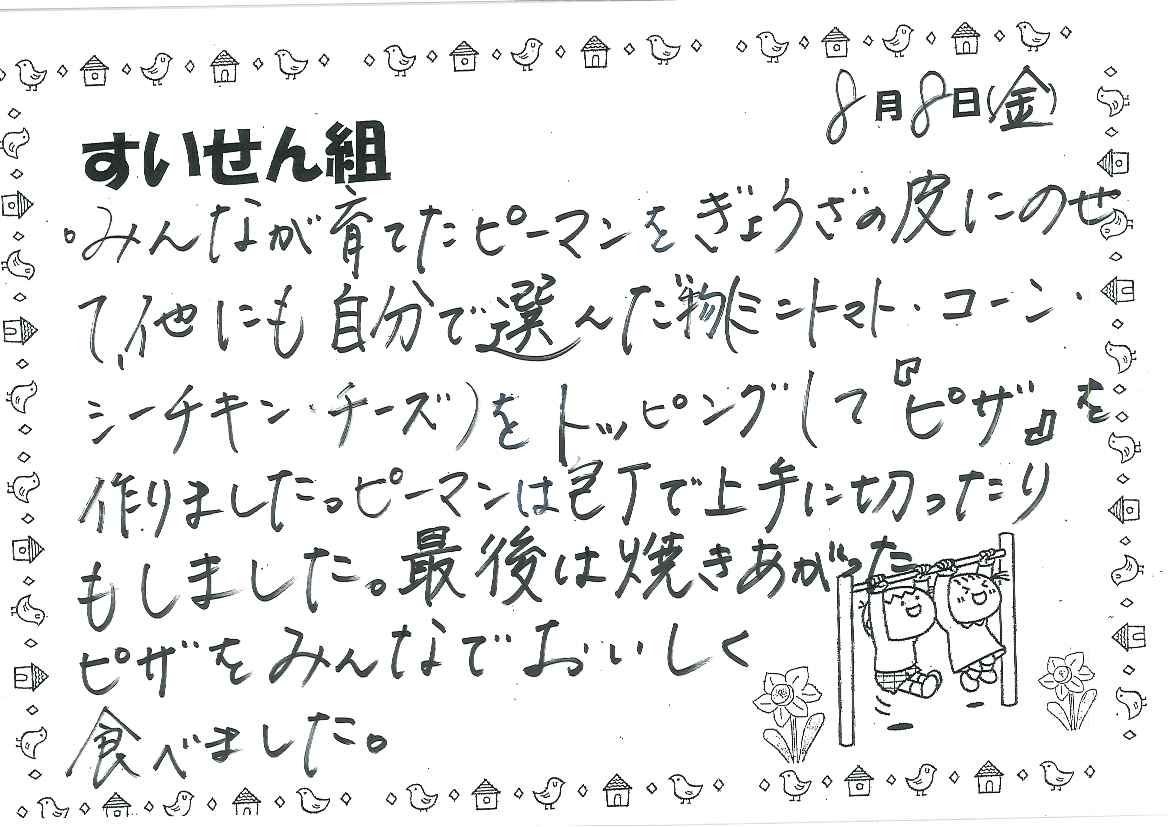 8月8日(金)
すいせん組
。みんなが育てたピーマンをぎょうざの皮にのせ
て、他にも自分で選んだ物(ミニトマト・コーン・
シーチキン・チーズ)をトッピングして『ピザ』を
作りました。ピーマンは包丁で上手に切ったり
もしました。最後は焼きあがった
ピザをみんなでおいしく
食べました。